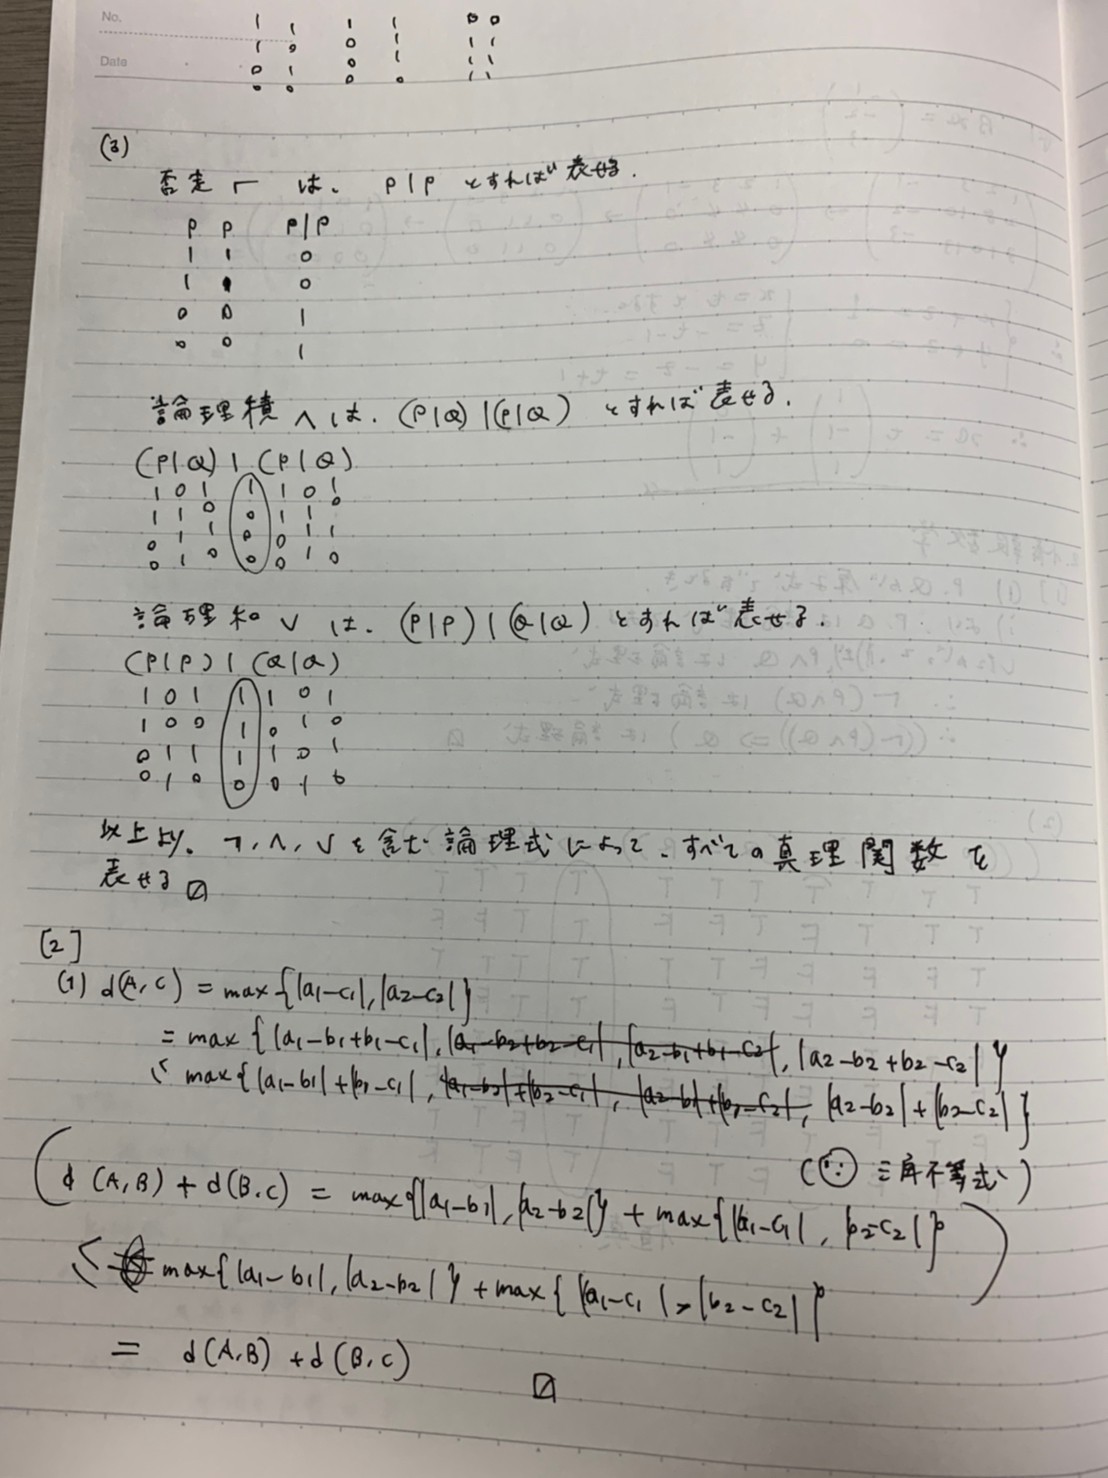 No.
Date
1 1 1 1 0 0
1 0 0 1 1 1
0 1 0 1 1 1
0 0 0 0 1 1
(3)
否定 ¬ は、 P|P とすれば 表せる.
P P P|P
1 1 0
1 1 0
0 0 1
0 0 1
論理積 ∧ は、 (P|Q)|(P|Q) とすれば 表せる.
(P|Q)|(P|Q)
1 0 1 1 1 0 1
1 1 0 0 1 1 0
0 1 1 0 0 1 1
0 1 0 0 0 1 0
論理和 ∨ は、 (P|P)|(Q|Q) とすれば 表せる.
(P|P)|(Q|Q)
1 0 1 1 1 0 1
1 0 0 1 0 1 0
0 1 1 1 1 0 1
0 1 0 0 0 1 0
以上より、 ¬, ∧, ∨ を 含む 論理式 によって、すべての 真理関数 を
表せる
[2]
(1) d(A, C) = max{|a1-c1|, |a2-c2|}
= max{|a1-b1+b1-c1|, |a1-b2+b2-c1|, |a2-b1+b1-c2|, |a2-b2+b2-c2|}
≦ max{|a1-b1|+|b1-c1|, |a1-b2|+|b2-c1|, |a2-b1|+|b1-c2|, |a2-b2|+|b2-c2|}
(∵ 三角不等式)
(d(A,B) + d(B,C) = max{|a1-b1|, |a2-b2|} + max{|a1-c1|, |b2-c2|})
≦ max{|a1-b1|, |a2-b2|} + max{|a1-c1|, |b2-c2|}
= d(A,B) + d(B,C)